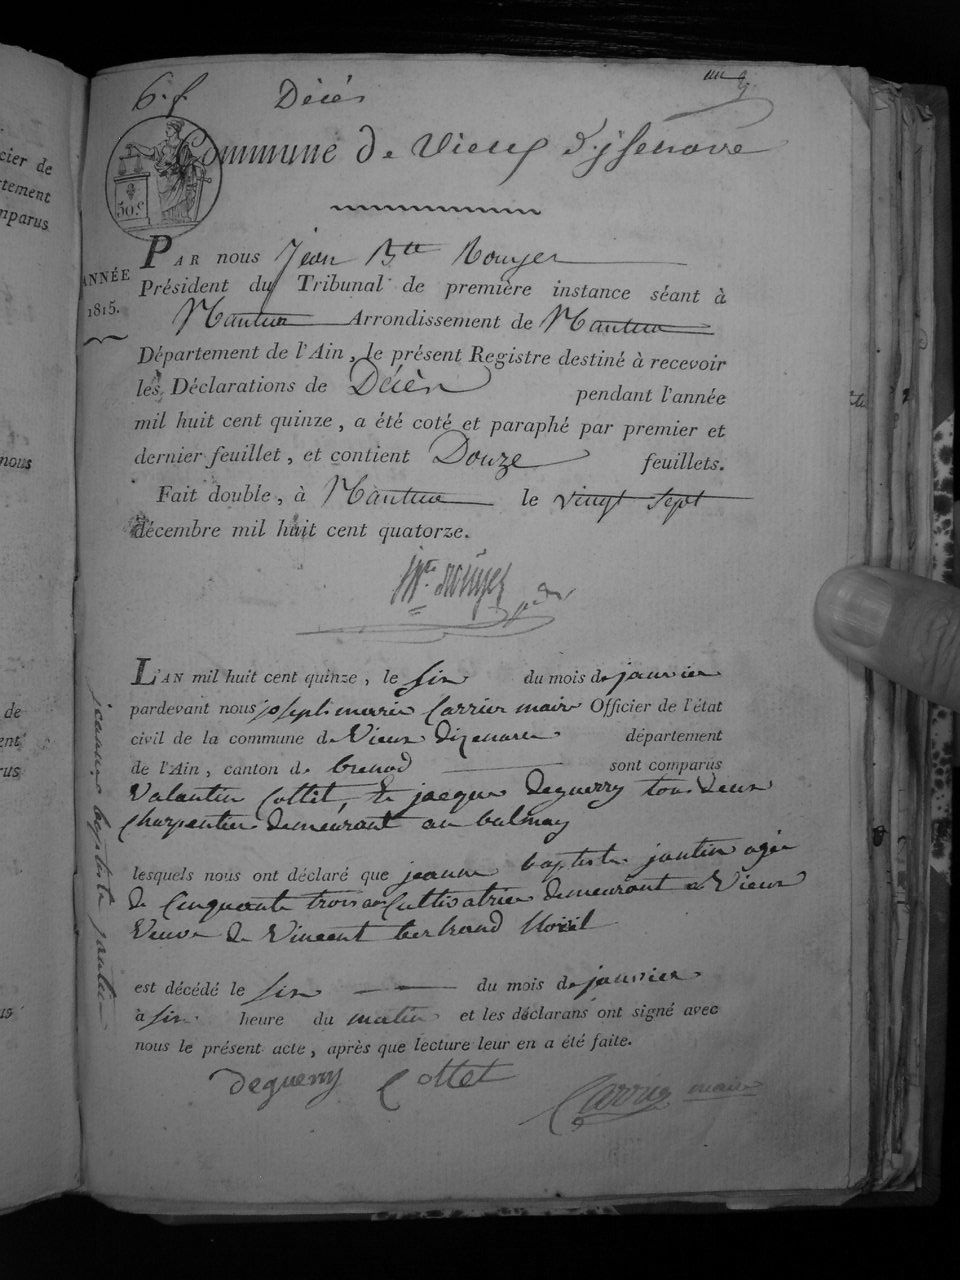 6. f. Décés
Commune de Vieux d'ysenave
50 c.
ANNÉE
1815.
PAR nous Jean Btte Rouyer
Président du Tribunal de première instance séant à
Nantua Arrondissement de Nantua
Département de l'Ain, le présent Registre destiné à recevoir
les Déclarations de Décès pendant l'année
mil huit cent quinze, a été coté et paraphé par premier et
dernier feuillet, et contient Douze feuillets.
Fait double, à Nantua le vingt sept
décembre mil huit cent quatorze.
Rouyer
L'AN mil huit cent quinze, le six du mois de janvier
pardevant nous joseph marie Carrier maire Officier de l'état
civil de la commune de Vieux dizenave département
de l'Ain, canton de brenod sont comparus
Valentin Cottet, et jacque Deguerry tous deux
Charpentier demeurant au balmay
lesquels nous ont déclaré que jeanne baptiste jantin agée
de Cinquante trois ans Cultivatrice demeurant a Vieux
Veuve de Vincent bertrand
est décédé le six du mois de janvier
à six heure du matin et les déclarans ont signé avec
nous le présent acte, après que lecture leur en a été faite.
deguerry Cottet
Carrier maire
jeanne baptiste jantin
cier de
rtement
mparus
nous
de
ent
rus